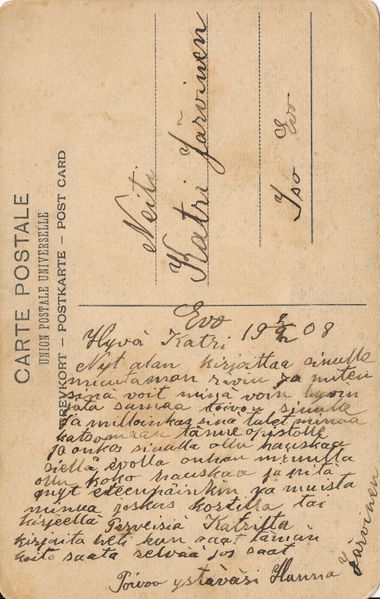 CARTE POSTALE
UNION POSTALE UNIVERSELLE
BREVKORT – POSTKARTE – POST CARD
Neiti
Katri Järvinen
Iso Evo
Evo
Hyvä Katri 19 08
Nyt alan kirjoittaa sinulle
muutaman rivin ja miten
sinä voit minä voin hyvin
sata samaa toivon sinulle
ja milloinkas sinä tulet minua
katsomaan tänne
ja onkos sinulla ollu hauskaa
siellä evolla onhan minulla
ollu koko hauskaa ja pitä
nyt eteenpäinkin ja muista
minua joskus kortilla tai
kirjeellä Terveisiä Katrilta
kirjoita heti kun saat tämän
koita saata selvää jos saat
Toivoo ystäväsi Hanna Järvinen